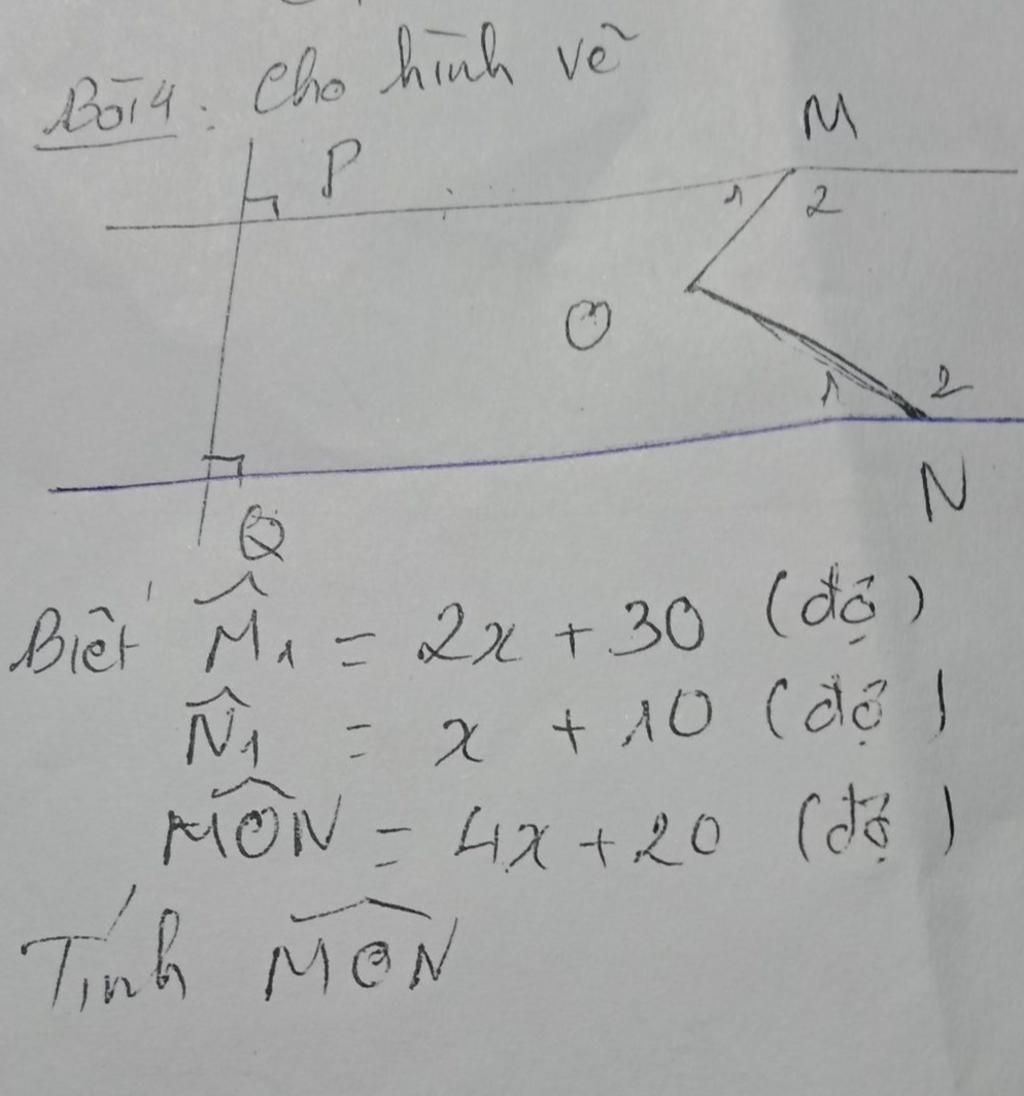 Bài 4: Cho hình vẽ
M
P
1 2
O
1 2
N
Q
Biết M̂₁ = 2x + 30 (độ)
N̂₁ = x + 10 (độ)
M̂ÔN̂ = 4x + 20 (độ)
Tính M̂ÔN̂